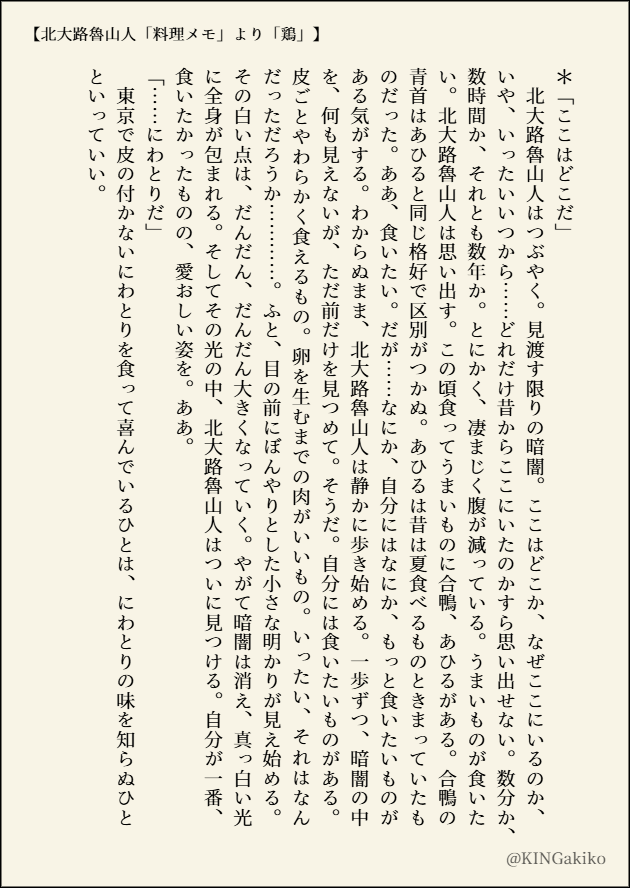 【北大路魯山人「料理メモ」より「鶏」】
＊「ここはどこだ」
　北大路魯山人はつぶやく。見渡す限りの暗闇。ここはどこか、なぜここにいるのか、
いや、いったいいつから……どれだけ昔からここにいたのかすら思い出せない。数分か、
数時間か、それとも数年か。とにかく、凄まじく腹が減っている。うまいものが食いた
い。北大路魯山人は思い出す。この頃食ってうまいものに合鴨、あひるがある。合鴨の
青首はあひると同じ格好で区別がつかぬ。あひるは昔は夏食べるものときまっていたも
のだった。ああ、食いたい。だが……なにか、自分にはなにか、もっと食いたいものが
ある気がする。わからぬまま、北大路魯山人は静かに歩き始める。一歩ずつ、暗闇の中
を、何も見えないが、ただ前だけを見つめて。そうだ。自分には食いたいものがある。
皮ごとやわらかく食えるもの。卵を生むまでの肉がいいもの。いったい、それはなん
だっただろうか…………。ふと、目の前にぼんやりとした小さな明かりが見え始める。
その白い点は、だんだん、だんだん大きくなっていく。やがて暗闇は消え、真っ白い光
に全身が包まれる。そしてその光の中、北大路魯山人はついに見つける。自分が一番、
食いたかったものの、愛おしい姿を。ああ。
「……にわとりだ」
　東京で皮の付かないにわとりを食って喜んでいるひとは、にわとりの味を知らぬひと
といっていい。
@KINGakiko